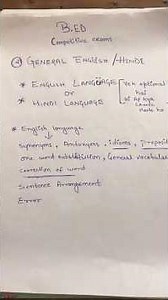 B.ED
Competitive exams
GENERAL ENGLISH / HINDI
* ENGLISH LANGUAGE
OR
* HINDI LANGUAGE
optional
hai
* English language
Synonyms, Antonyms, idioms,
one word substitution, General vocabulary
correction of word
Sentence Arrangement
Error